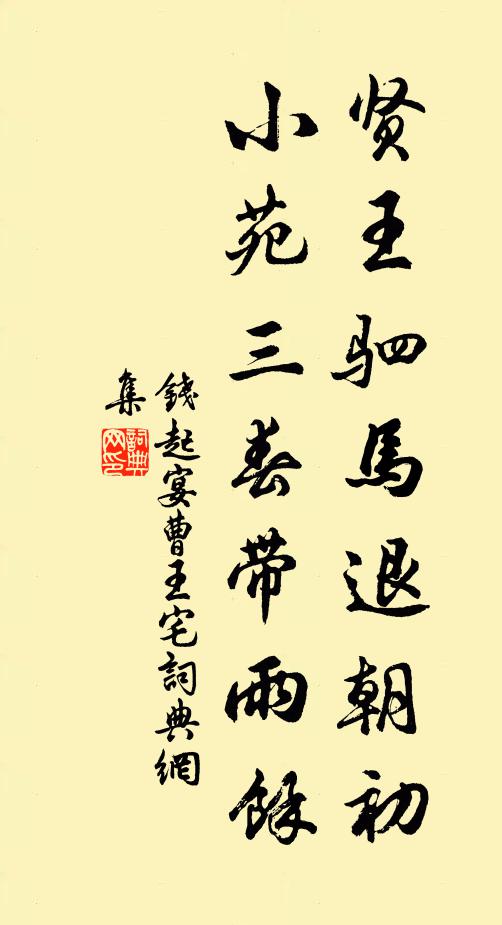 贤王驷馬退朝初
小苑三春带雨餘
錢起宴曹王宅詞典網
集
詞典
网印